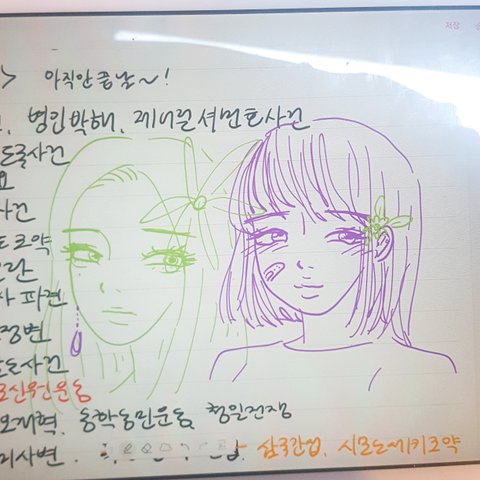 저장
> 아직안끝남~!
병인박해, 제너럴셔먼호사건
도굴사건
요
사건
도조약
란
사 파견
정변
도사건
신원운동
오개혁, 동학농민운동, 청일전쟁
미사변. 삼국간섭, 시모노세키조약